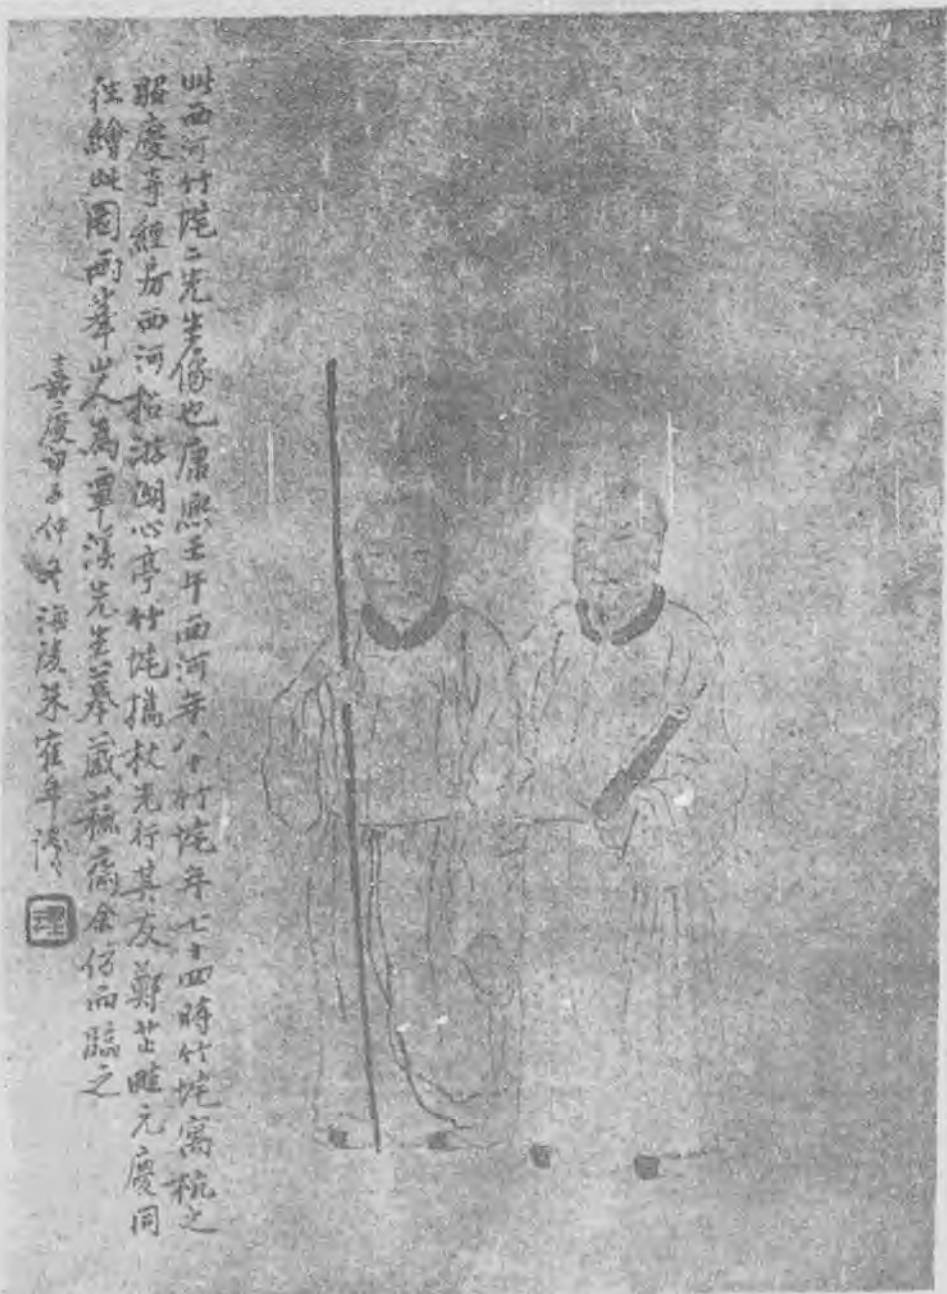 此西河竹垞二先生像也康熙壬午西河年八十竹垞年七十四時竹垞寓杭之
昭慶寺經房西河招游湖心亭竹垞攜杖先行其友鄭芷畦元慶同
往繪此圖兩峯山人為覃溪先生摹藏蘇齋余仿而臨之
嘉慶甲子仲冬海陵朱隺年識